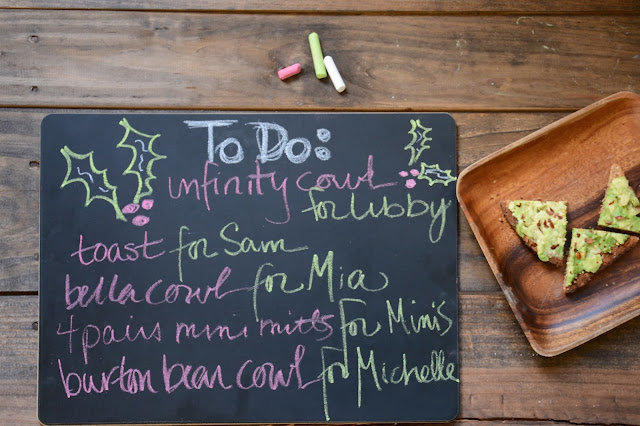 To Do:
infinity cowl
for Lubby
toast for Sam
bella cowl for Mia
4 pairs mini mitts for Minis
burton bear cowl for Michelle